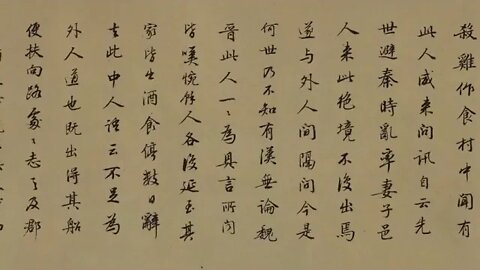 殺雞作食村中聞有
此人咸来問訊自云先
世避秦時亂率妻子邑
人来此絶境不復出焉
遂与外人間隔問今是
何世乃不知有漢無論魏
晉此人一〻為具言所聞
皆嘆惋餘人各復延至其
家皆出酒食停數日辭
去此中人語云不足為
外人道也既出得其船
便扶向路處〻志之及郡